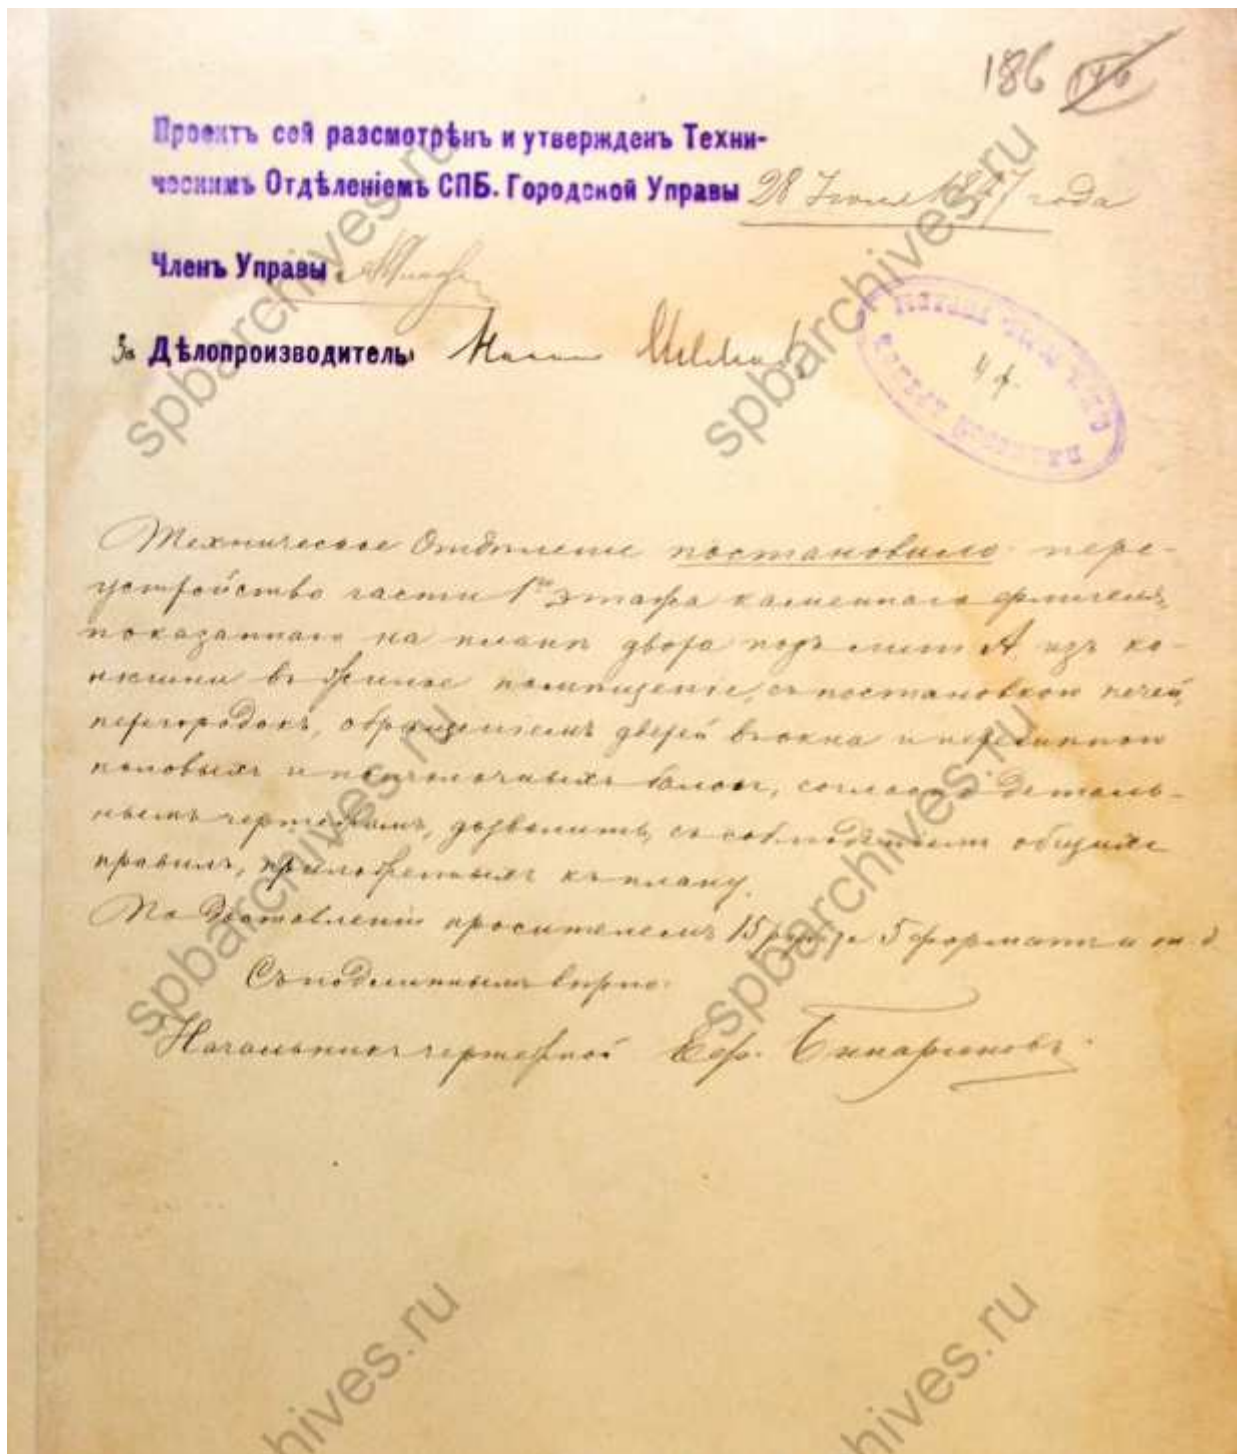 186 146
Проектъ сей разсмотрѣнъ и утвержденъ Техни-
ческимъ Отдѣленіемъ СПБ. Городской Управы 28 года
Членъ Управы
За Дѣлопроизводитель
4 ф.
Техническое Отдѣленіе постановило: пере-
устройство части 1го этажа каменнаго флигеля,
показаннаго на планѣ двора подъ лит А изъ ко-
нюшни въ жилое помѣщеніе, съ постановкою печей,
перегородокъ, обращеніемъ дверей въ окна и перемѣною
половыхъ и потолочныхъ балокъ, согласно деталь-
нымъ чертежамъ, дозволить, съ соблюденіемъ общихъ
правилъ, приложенныхъ къ плану.
По доставленіи просителемъ 15 5 и т. д.
Съ подлиннымъ вѣрно:
Начальникъ чертежной
spbarchives.ru
spbarchives.ru
spbarchives.ru
spbarchives.ru
hives.ru
hives.ru